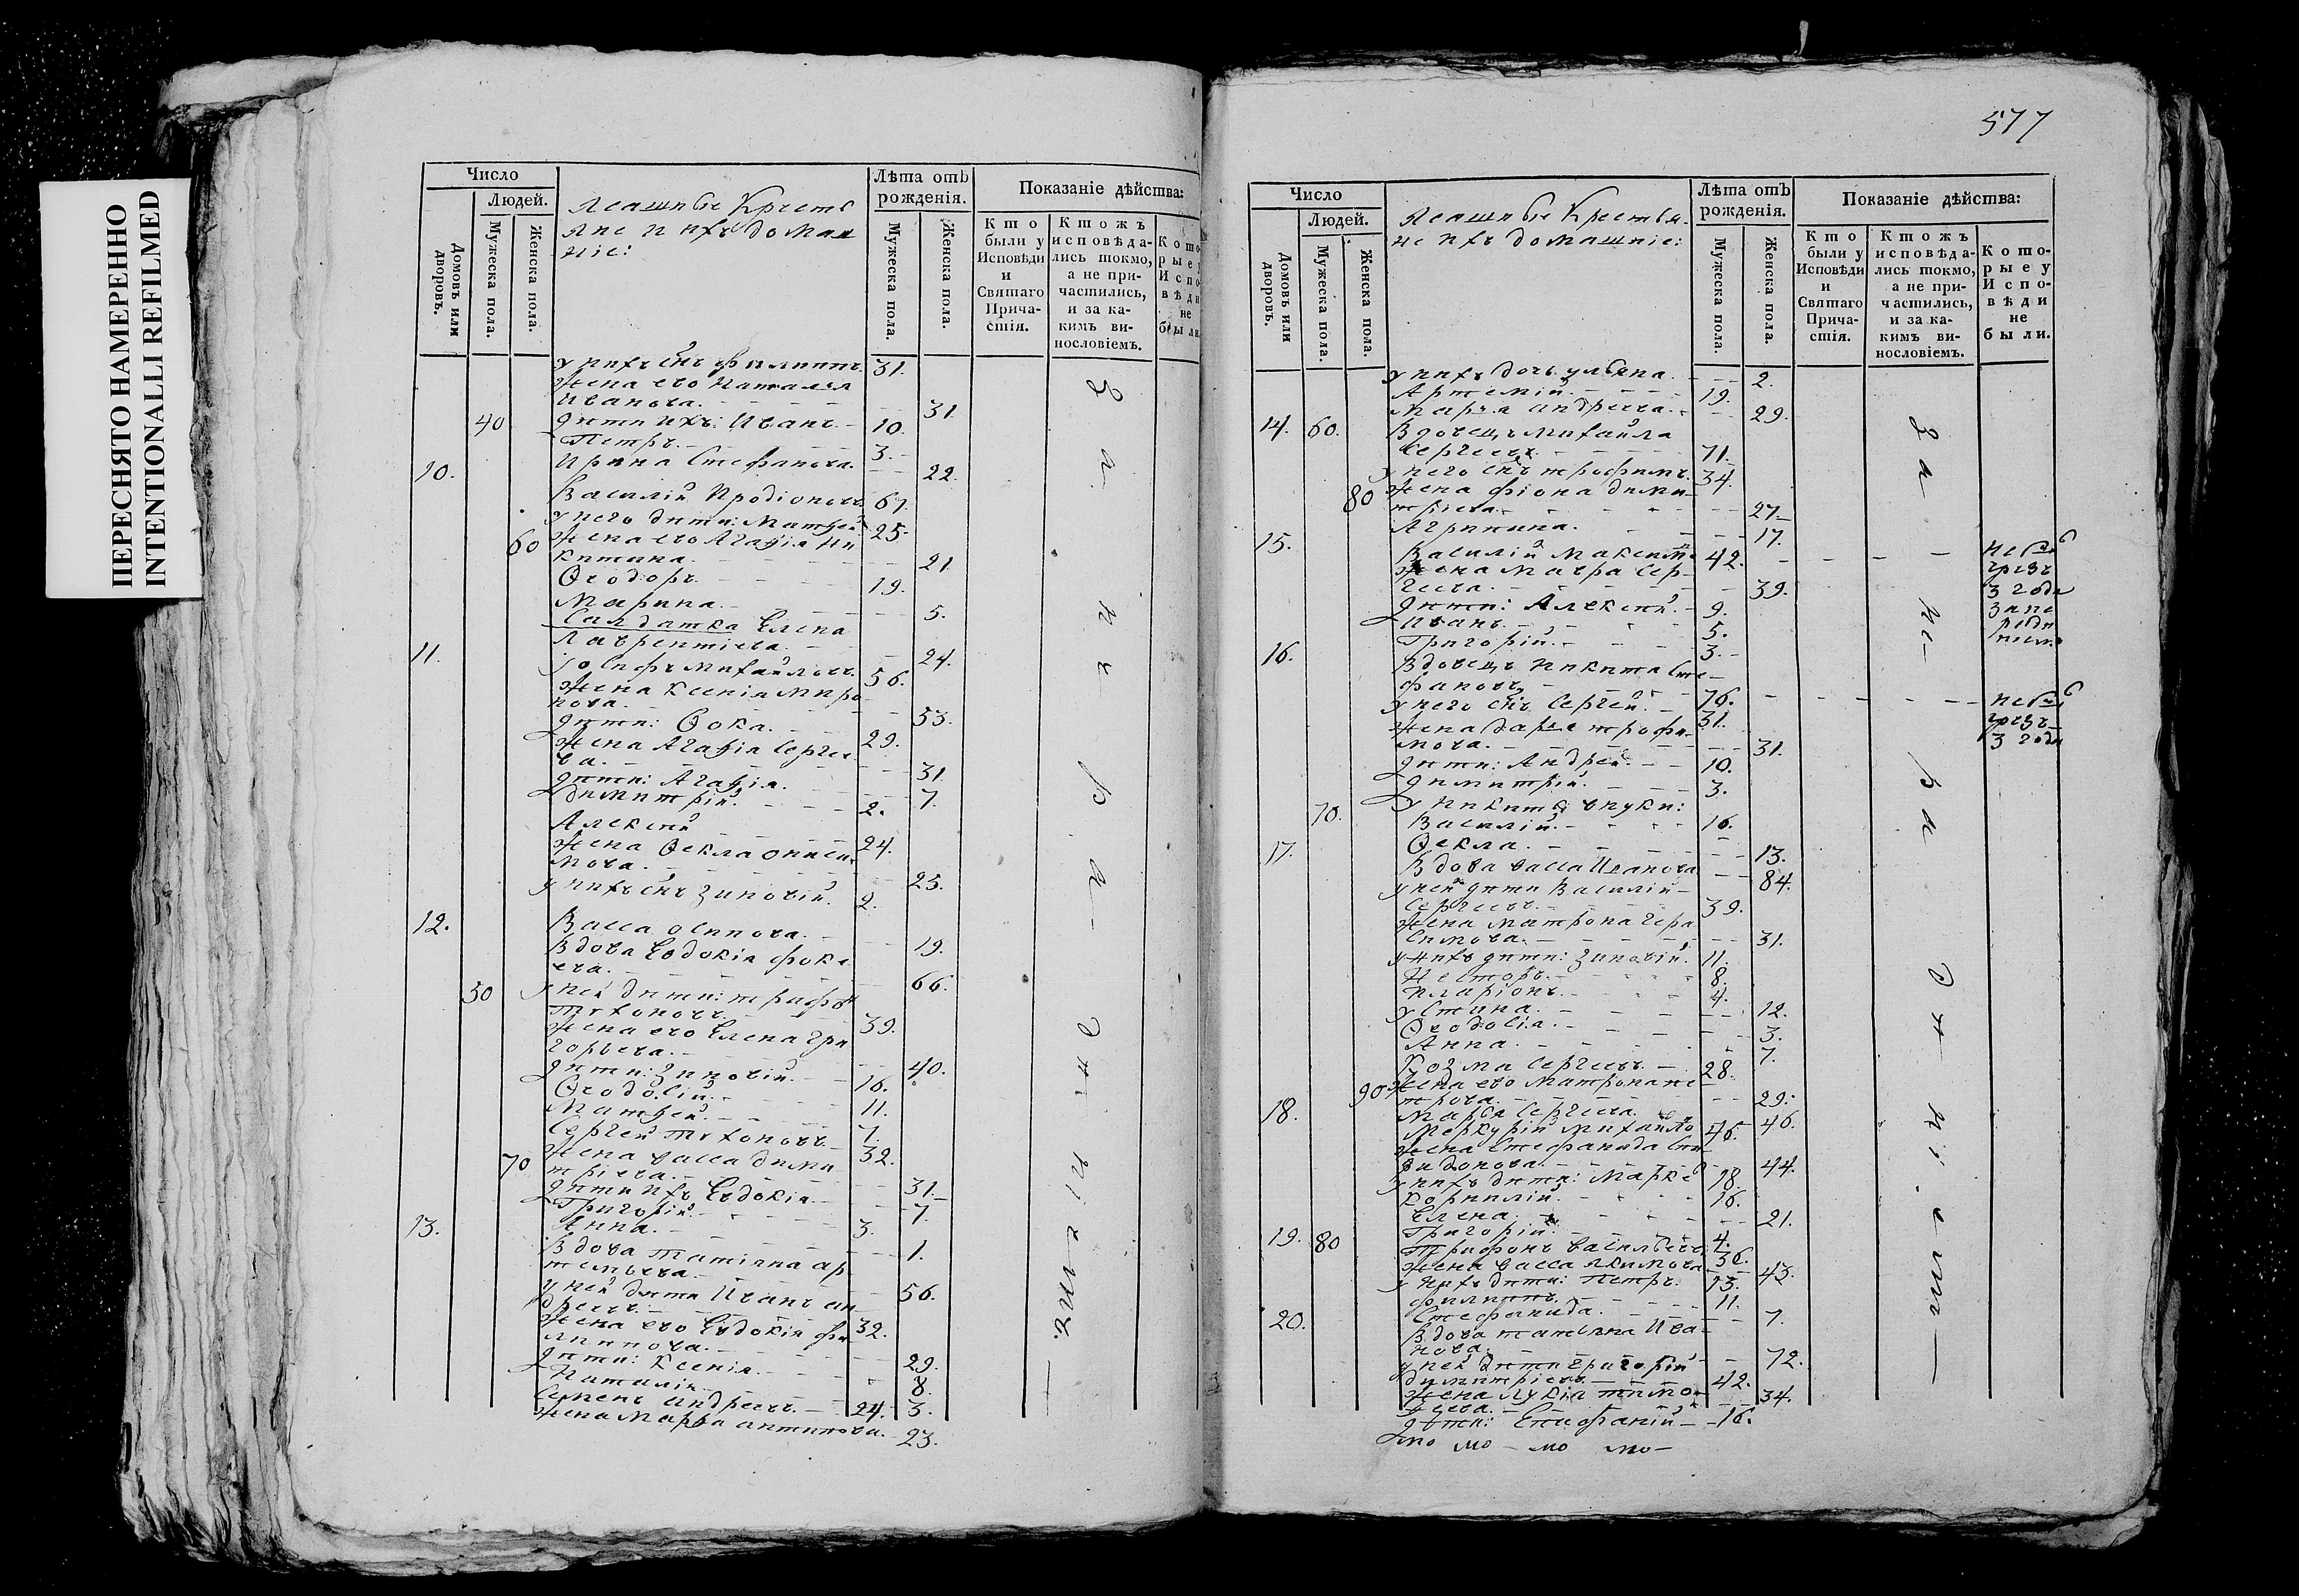 ПЕРЕСНЯТО НАМЕРЕННО
INTENTIONALLI REFILMED
Число
Людей.
Домовъ или дворовъ.
Мужеска пола.
Женска пола.
Лѣта отъ рожденія.
Мужеска пола.
Женска пола.
Показаніе дѣйства:
Кто были у Исповѣди и Святаго Прича-стія.
Ктожъ исповѣда-лись токмо, а не при-частились, и за ка-кимъ ви-нословіемъ.
у нихъ снъ Филиппъ 31.
жена его Наталья
Иванова. 31.
40 дѣти ихъ: Иванъ. 10.
Петръ. 3.
Ирина Стефанова. 22.
10.
Василій Иродіоновъ 67.
у него дѣти: Матѳей 25.
60 жена его Агаѳія Ни
китина. 21
Ѳеодоръ. 19.
Марина. 5.
Салдатка Елена
Лаврентіева. 24.
11.
Іосифъ Михайловъ 56.
жена Ксенія Миро
нова. 53.
дѣти: Ѳока. 29.
жена Агафія Сергее
ва. 31.
дѣти: Агафія. 7.
Димитрій. 2.
Алексѣй 24.
жена Ѳекла Ониси
мова. 25.
у нихъ снъ Зиновій. 2.
Васса Осипова. 19.
12.
Вдова Евдокія Фоке
ева. 66.
50 у ней дѣти: Трифонъ
Тихоновъ. 39.
жена его Елена Гри
горьева. 40.
дѣти: Зиновій. 16.
Ѳеодосій. 11.
Матѳей. 7.
Сергей Тихоновъ 32.
70 жена Васса Дими
тріева. 31.
дѣти ихъ Евдокія. 7.
Григорій. 3.
Анна. 1.
13.
Вдова Татіяна Ар
темьева. 56.
у ней дѣти Иванъ Ан
дреевъ. 32.
жена его Евдокія Фи
липпова. 29.
дѣти: Ксенія. 8.
Наталія. 3.
Семенъ Андреевъ. 24.
жена Марѳа Антипова. 23.
577
Число
Людей.
Домовъ или дворовъ.
Мужеска пола.
Женска пола.
Лѣта отъ рожденія.
Мужеска пола.
Женска пола.
Показаніе дѣйства:
Кто были у Исповѣди и Святаго Прича-стія.
Ктожъ исповѣда-лись токмо, а не при-частились, и за ка-кимъ ви-нословіемъ.
Кото-рые у Испо-вѣди не были.
у нихъ дочь Ульяна. 2.
Артемій. 19.
Марѳа Андреева. 29.
14. 60. Вдовецъ Михайла
Сергеевъ 71.
у него снъ Трофимъ. 34.
80 жена Фіона Дими
тріева. 27.
Агрипина. 17.
15.
Василій 42.
жена Мавра Сер
геева. 39.
дѣти: Алексѣй. 9.
Иванъ. 5.
Григорій. 3.
16.
Вдовецъ Никита Сте
фановъ 76.
у него снъ Сергей. 31.
жена Дарья Трофи
мова. 31.
дѣти: Андрей 10.
Димитрій. 3.
у Никиты внуки:
70. Василій. 16.
Ѳекла. 13.
17.
Вдова Васса Иванова 84.
у ней дѣти Василій
Сергеевъ. 39.
жена Матрона Гера
симова. 31.
у нихъ дѣти: Зиновій. 11.
Несторъ. 8.
Иларіонъ. 4.
Устина. 12.
Ѳеодосія. 3.
Анна. 7.
Козма Сергеевъ 28.
90 жена его Матрона Пе
трова. 29.
Марѳа Сергеева. 46.
18.
Меркурій Михайло 46.
жена Стефанида Спи
ридонова. 44.
у нихъ дѣти: Марке 18.
Корнилій. 16.
Елена. 21.
Григорій. 4.
19. 80 Трифонъ Васильевъ 36.
жена Васса Якимова 43.
у нихъ дѣти: Петръ. 13.
Филиппъ. 11.
Стефанида. 7.
20.
Вдова Татьяна Ива
нова. 72.
у ней дѣти Григорій
Димитріевъ 42.
жена Лукія Тимо
ѳеева. 34.
дѣти: Епифаній 16.